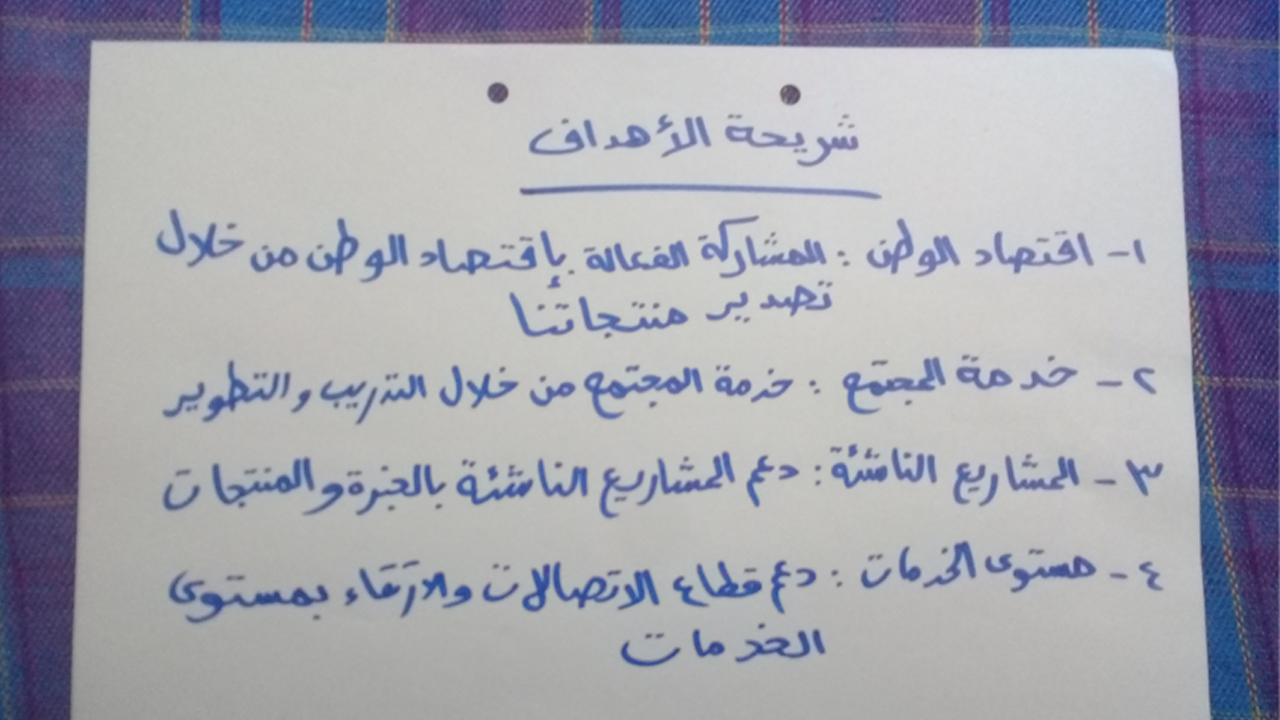 شريحة الأهداف
١- اقتصاد الوطن : المشاركة الفعالة بإقتصاد الوطن من خلال
تصدير منتجاتنا
٢- خدمة المجتمع : خدمة المجتمع من خلال التدريب والتطوير
٣- المشاريع الناشئة : دعم المشاريع الناشئة بالخبرة والمنتجات
٤- مستوى الخدمات : دعم قطاع الاتصالات والارتقاء بمستوى
الخدمات